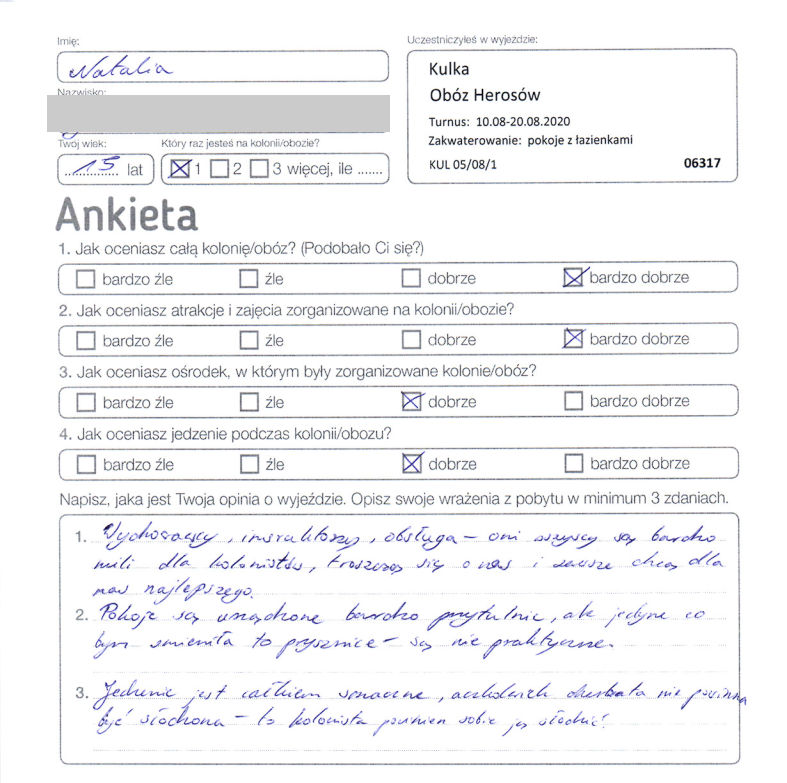 Imię:
Natalia
Nazwisko:
Twój wiek:
Który raz jesteś na kolonii/obozie?
15 lat
1 2 3 więcej, ile .......
Uczestniczyłeś w wyjeździe:
Kulka
Obóz Herosów
Turnus: 10.08-20.08.2020
Zakwaterowanie: pokoje z łazienkami
KUL 05/08/1 06317
Ankieta
1. Jak oceniasz całą kolonię/obóz? (Podobało Ci się?)
bardzo źle źle dobrze bardzo dobrze
2. Jak oceniasz atrakcje i zajęcia zorganizowane na kolonii/obozie?
bardzo źle źle dobrze bardzo dobrze
3. Jak oceniasz ośrodek, w którym były zorganizowane kolonie/obóz?
bardzo źle źle dobrze bardzo dobrze
4. Jak oceniasz jedzenie podczas kolonii/obozu?
bardzo źle źle dobrze bardzo dobrze
Napisz, jaka jest Twoja opinia o wyjeździe. Opisz swoje wrażenia z pobytu w minimum 3 zdaniach.
1. Wychowawcy, instruktorzy, obsługa - oni wszyscy są bardzo
mili dla kolonistów, troszczą się o nas i zawsze chcą dla
nas najlepszego.
2. Pokoje są urządzone bardzo przytulnie, ale jedyne co
bym zmieniła to prysznice - są nie praktyczne.
3. Jedzenie jest całkiem smaczne, aczkolwiek herbata nie powinna
być słodzona - to kolonista powinien sobie ją słodzić.